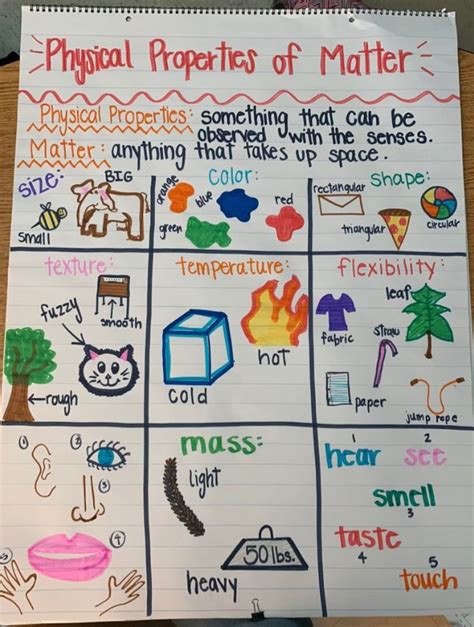 Physical Properties of Matter
Physical Properties: something that can be
observed with the senses.
Matter: anything that takes up space.
size:
BIG
small
color:
orange
blue
red
green
shape:
rectangular
triangular
circular
texture:
fuzzy
smooth
rough
temperature:
hot
cold
flexibility:
leaf
fabric
straw
paper
jump rope
1
2
3
4
5
mass:
light
50 lbs.
heavy
1
2
hear see
smell
3
taste
4
5
touch